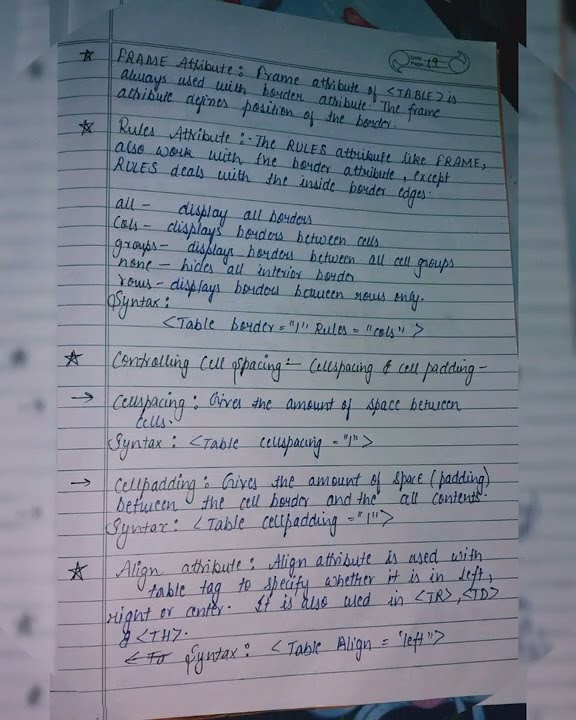 Date
Page 19
☆ FRAME Attribute : Frame attribute of <TABLE> is
always used with border attribute. The frame
attribute defines position of the border.
☆ Rules Attribute :- The RULES attribute like FRAME,
also work with the border attribute, except
RULES deals with the inside border edges.
all - display all borders
cols - displays borders between cells
groups - displays borders between all cell groups
none - hides all interior border
rows - displays borders between rows only.
Syntax :
<Table border = "1" Rules = "cols" >
☆ Controlling Cell Spacing :- Cellspacing & cell padding -
→ Cellspacing : Gives the amount of space between
cells.
Syntax : <Table cellspacing = "1">
→ Cellpadding : Gives the amount of space (padding)
between the cell border and the all contents.
Syntax : <Table cellpadding = "1">
☆ Align attribute : Align attribute is used with
table tag to specify whether it is in left,
right or center. It is also used in <TR>, <TD>
& <TH>.
Syntax : <Table Align = "left">